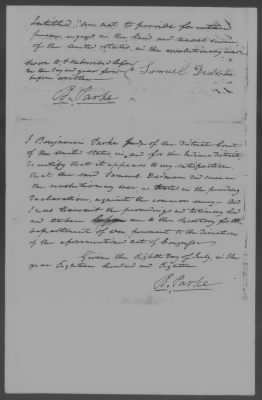 entitled, "An act to provide for certain
persons engaged in the land and naval service
of the United States, in the revolutionary war"
Sworn to & subscribed before
on the day and year
before written
Samuel
B. Parke
I Benjamin Parke Judge of the District Court
of the United States in and for the Indiana district
do certify that it appears to my satisfaction
that the said Samuel did serve in
the revolutionary war as stated in the preceding
declaration, against the common enemy. And
I now transmit the proceedings and testimony had
and taken before me to the Secretary for the
department of war pursuant to the directions
of the aforementioned act of Congress
Given the Eighth day of July in the
year Eighteen hundred and Eighteen
B. Parke